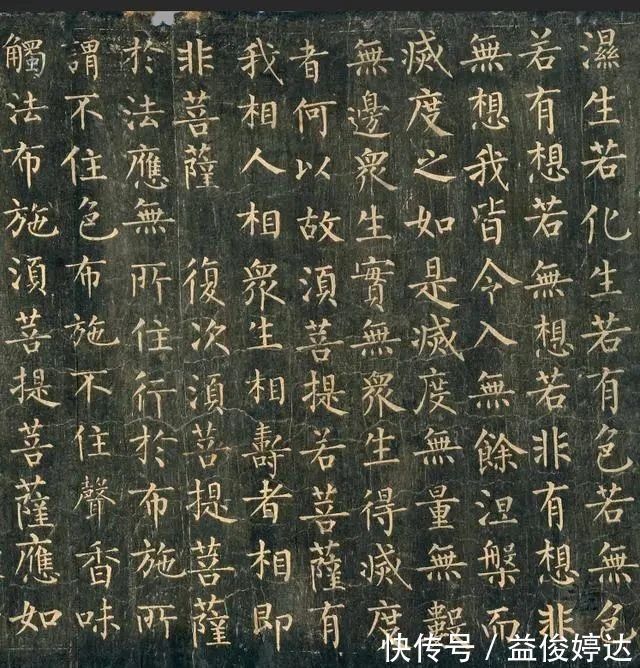 濕生若化生若有色若無色
若有想若無想若非有想非
無想我皆令入無餘涅槃而
滅度之如是滅度無量無數
無邊衆生實無衆生得滅度
者何以故須菩提若菩薩有
我相人相衆生相壽者相即
非菩薩　復次須菩提菩薩
於法應無所住行於布施所
謂不住色布施不住聲香味
觸法布施須菩提菩薩應如
快传号 / 益俊婷达